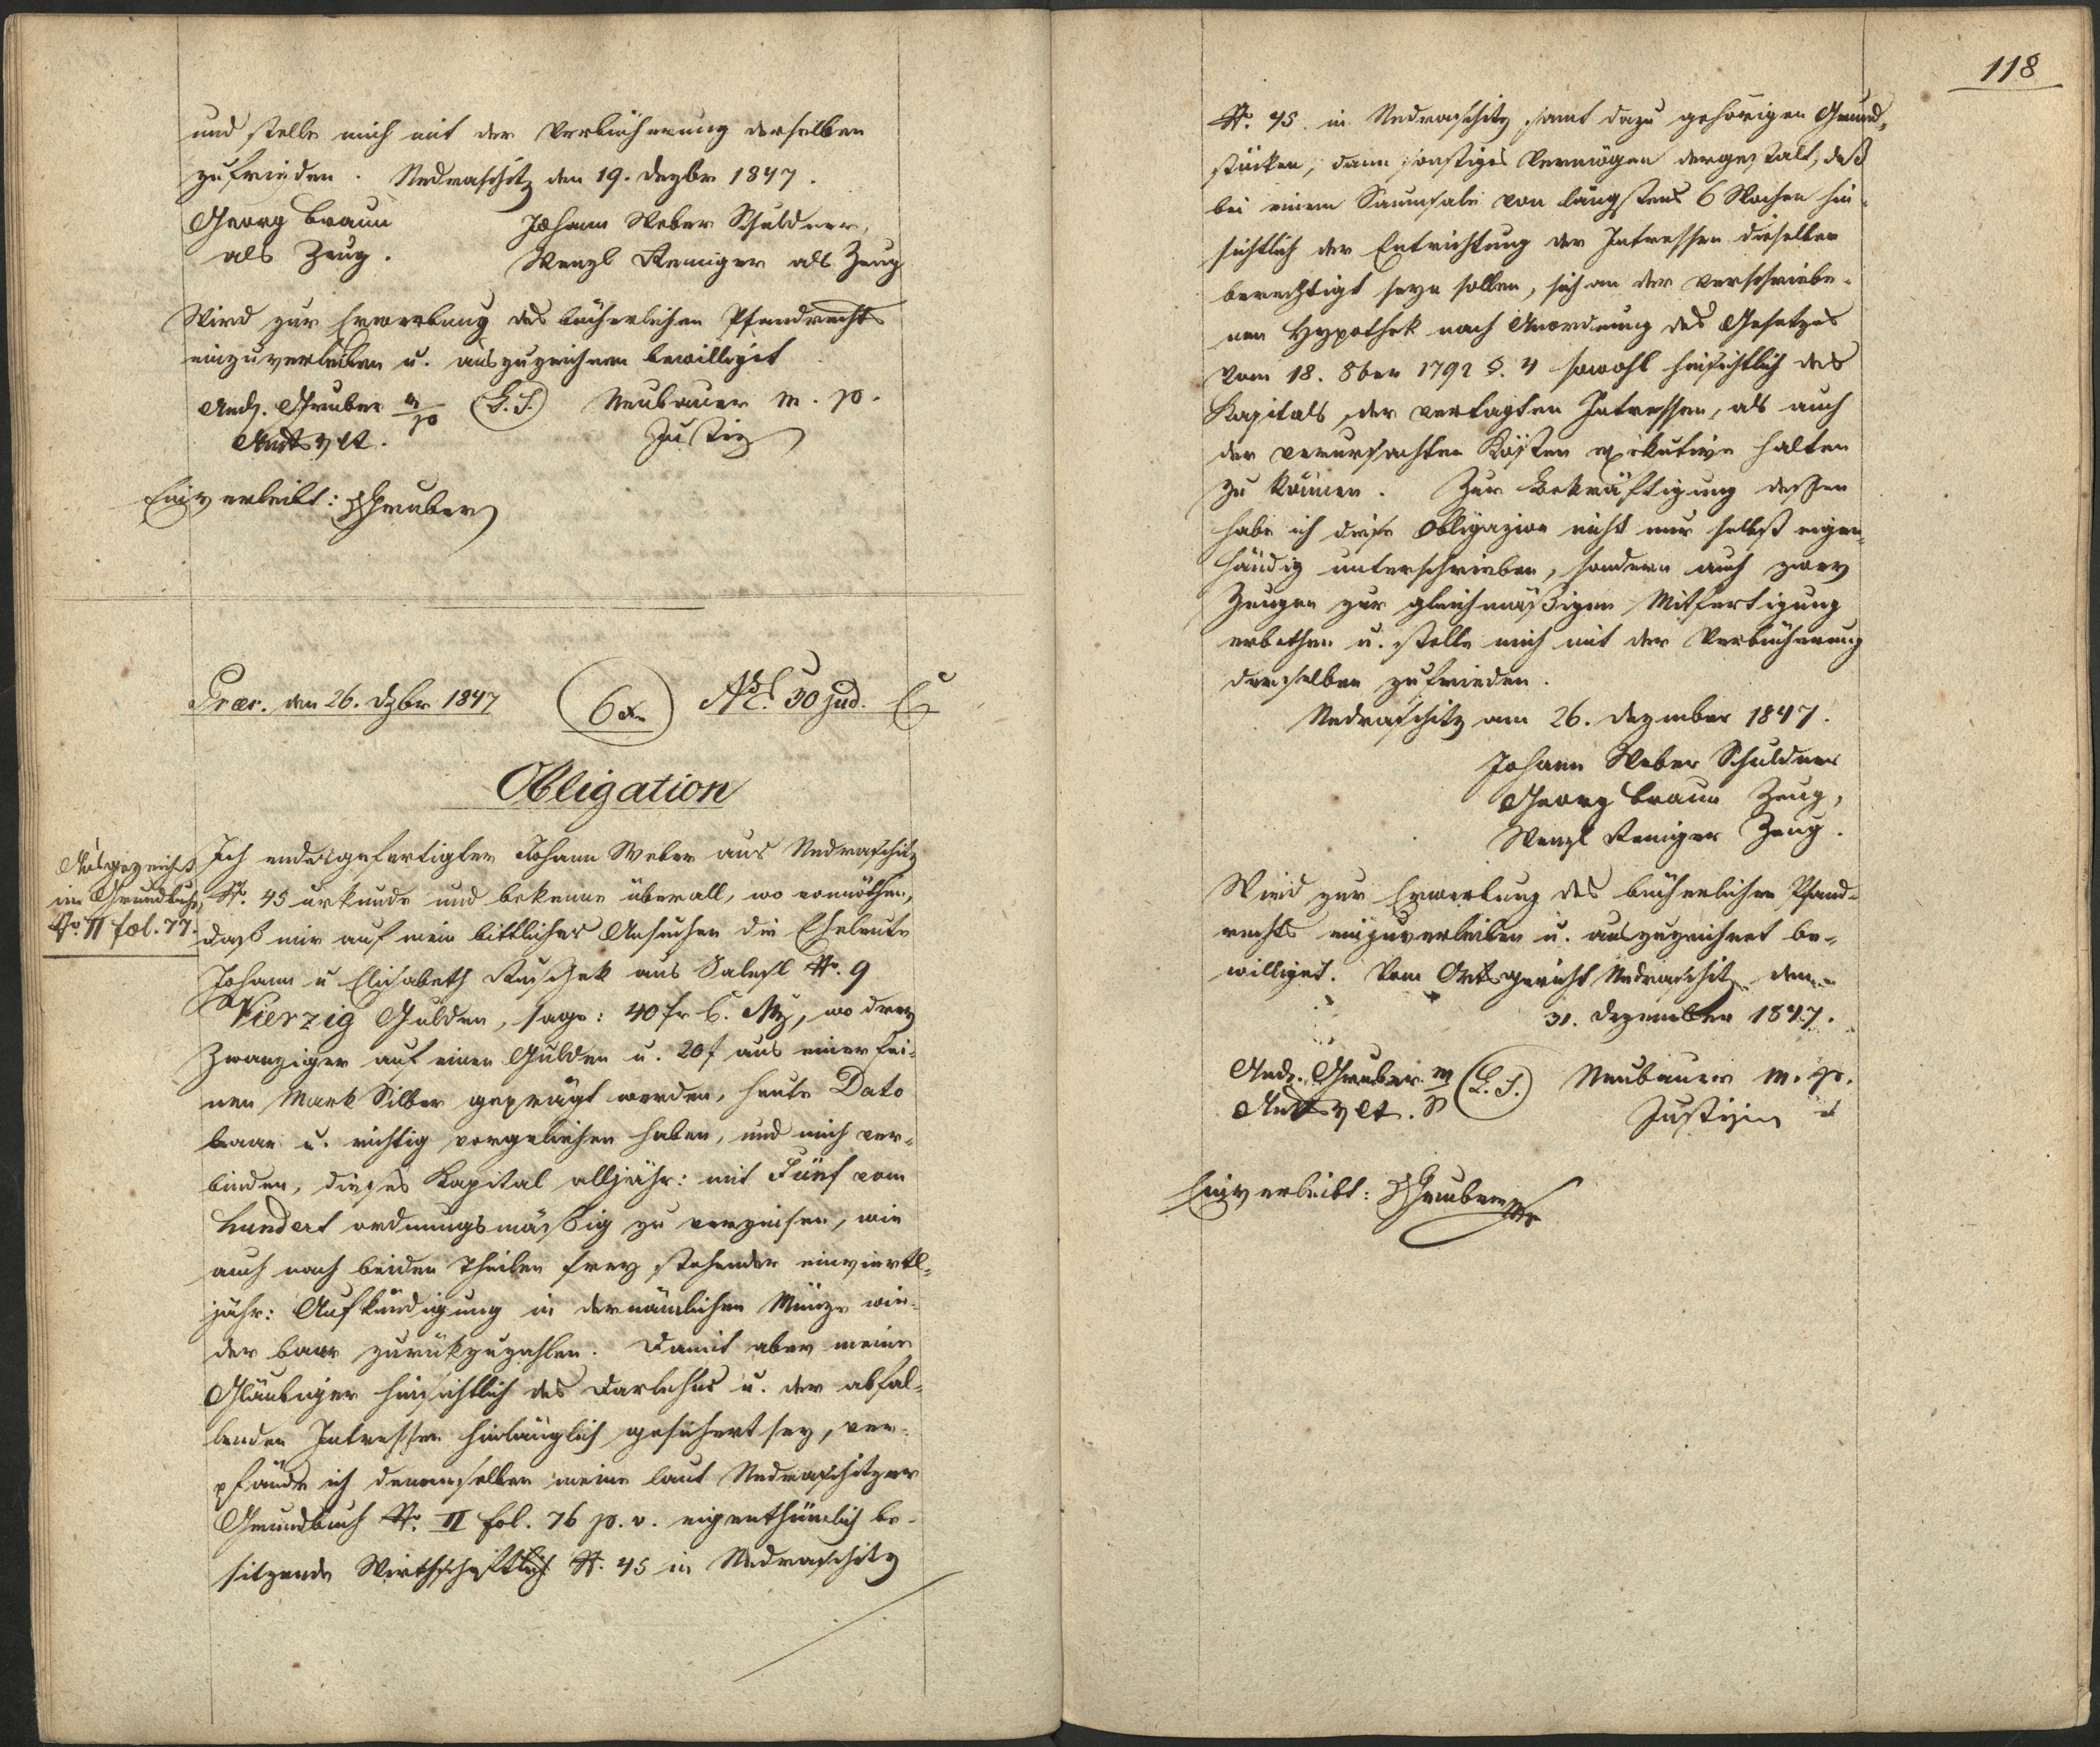 und stelle mich mit der Verbücherung derselben
zufrieden. Nedraschitz den 19. Dezbr 1847.
Georg Braun Johann Weber Schuldner,
als Zeug. Wenzl Reniger als Zeug
Wird zur Erwerbung des bücherlichen Pfandrechts
einzuverleiben u. auszuzeichnen bewilligt
And. Gruber m/p (L.S.) Neubauer m. p.
Justiz
Einverleibt: Gruber
Præs. den 26. Dzbr 1847 6 x Nro. 30 jud.
Obligation
Ausgezeichnet
im Grundbuche
No. II fol. 77.
Ich endesgefertigter Johann Weber aus Nedraschitz
No. 45 urkunde und bekenne überall, wo vonnöthen,
daß mir auf mein bittliches Ansuchen die Eheleute
Johann u Elisabeth aus Salesl No. 9
Vierzig Gulden, sage: 40 fr C. Mz, wo drey
Zwanziger auf einen Gulden u. 20 f aus einer fei-
nen Mark Silber geprägt werden, heute Dato
baar u. richtig vorgeliehen haben, und mich ver-
binden, dieses Kapital alljähr: mit Fünf vom
hundert ordnungsmäßig zu verzinsen, wie
auch nach beiden Theilen frey stehender einviertl-
jähr: Aufkündigung in der nämlichen Münze wie-
der baar zurückzuzahlen. Damit aber meine
Gläubiger hinsichtlich des Darlehns u. der abfal-
lenden Intressen hinlänglich gesichert sey, ver-
pfände ich denenselben meine laut Nedraschitzer
Grundbuch No. II fol. 76 p. v. eigenthümlich be-
sitzende Wirthschaft No. 45 in Nedraschitz
118
No. 45 in Nedraschitz samt dazu gehörigen Grund-
stücken, dann sonstiges Vermögen dergestalt, daß
bei einem Saumsale von längstens 6 Wochen hin-
sichtlich der Entrichtung der Intressen dieselben
berechtigt seyn sollen, sich an der verschriebe-
nen Hypothek nach Anordnung des Gesetzes
vom 18. 8ber 1792 §. 4 sowohl hinsichtlich des
Kapitals, der vertagten Intressen, als auch
der verursachten Kösten exekutive halten
zu können. Zur Bekräftigung dessen
habe ich diese Obligazion nicht nur selbst eigen-
händig unterschrieben, sondern auch zwey
Zeugen zur gleichmäßigen Mitfertigung
erbethen u. stelle mich mit der Verbücherung
derselben zufrieden.
Nedraschitz am 26. Dezember 1847.
Johann Weber Schuldner
Georg Braun Zeug,
Wenzl Reniger Zeug.
Wird zur Erwerbung des bücherlichen Pfand-
rechts einzuverleiben u. auszuzeichnet be-
williget. Vom Ortsgericht Nedraschitz den
31. Dezember 1847.
And. Gruber m/p (L.S.) Neubauer m. p.
Justiz
Einverleibt: Gruber